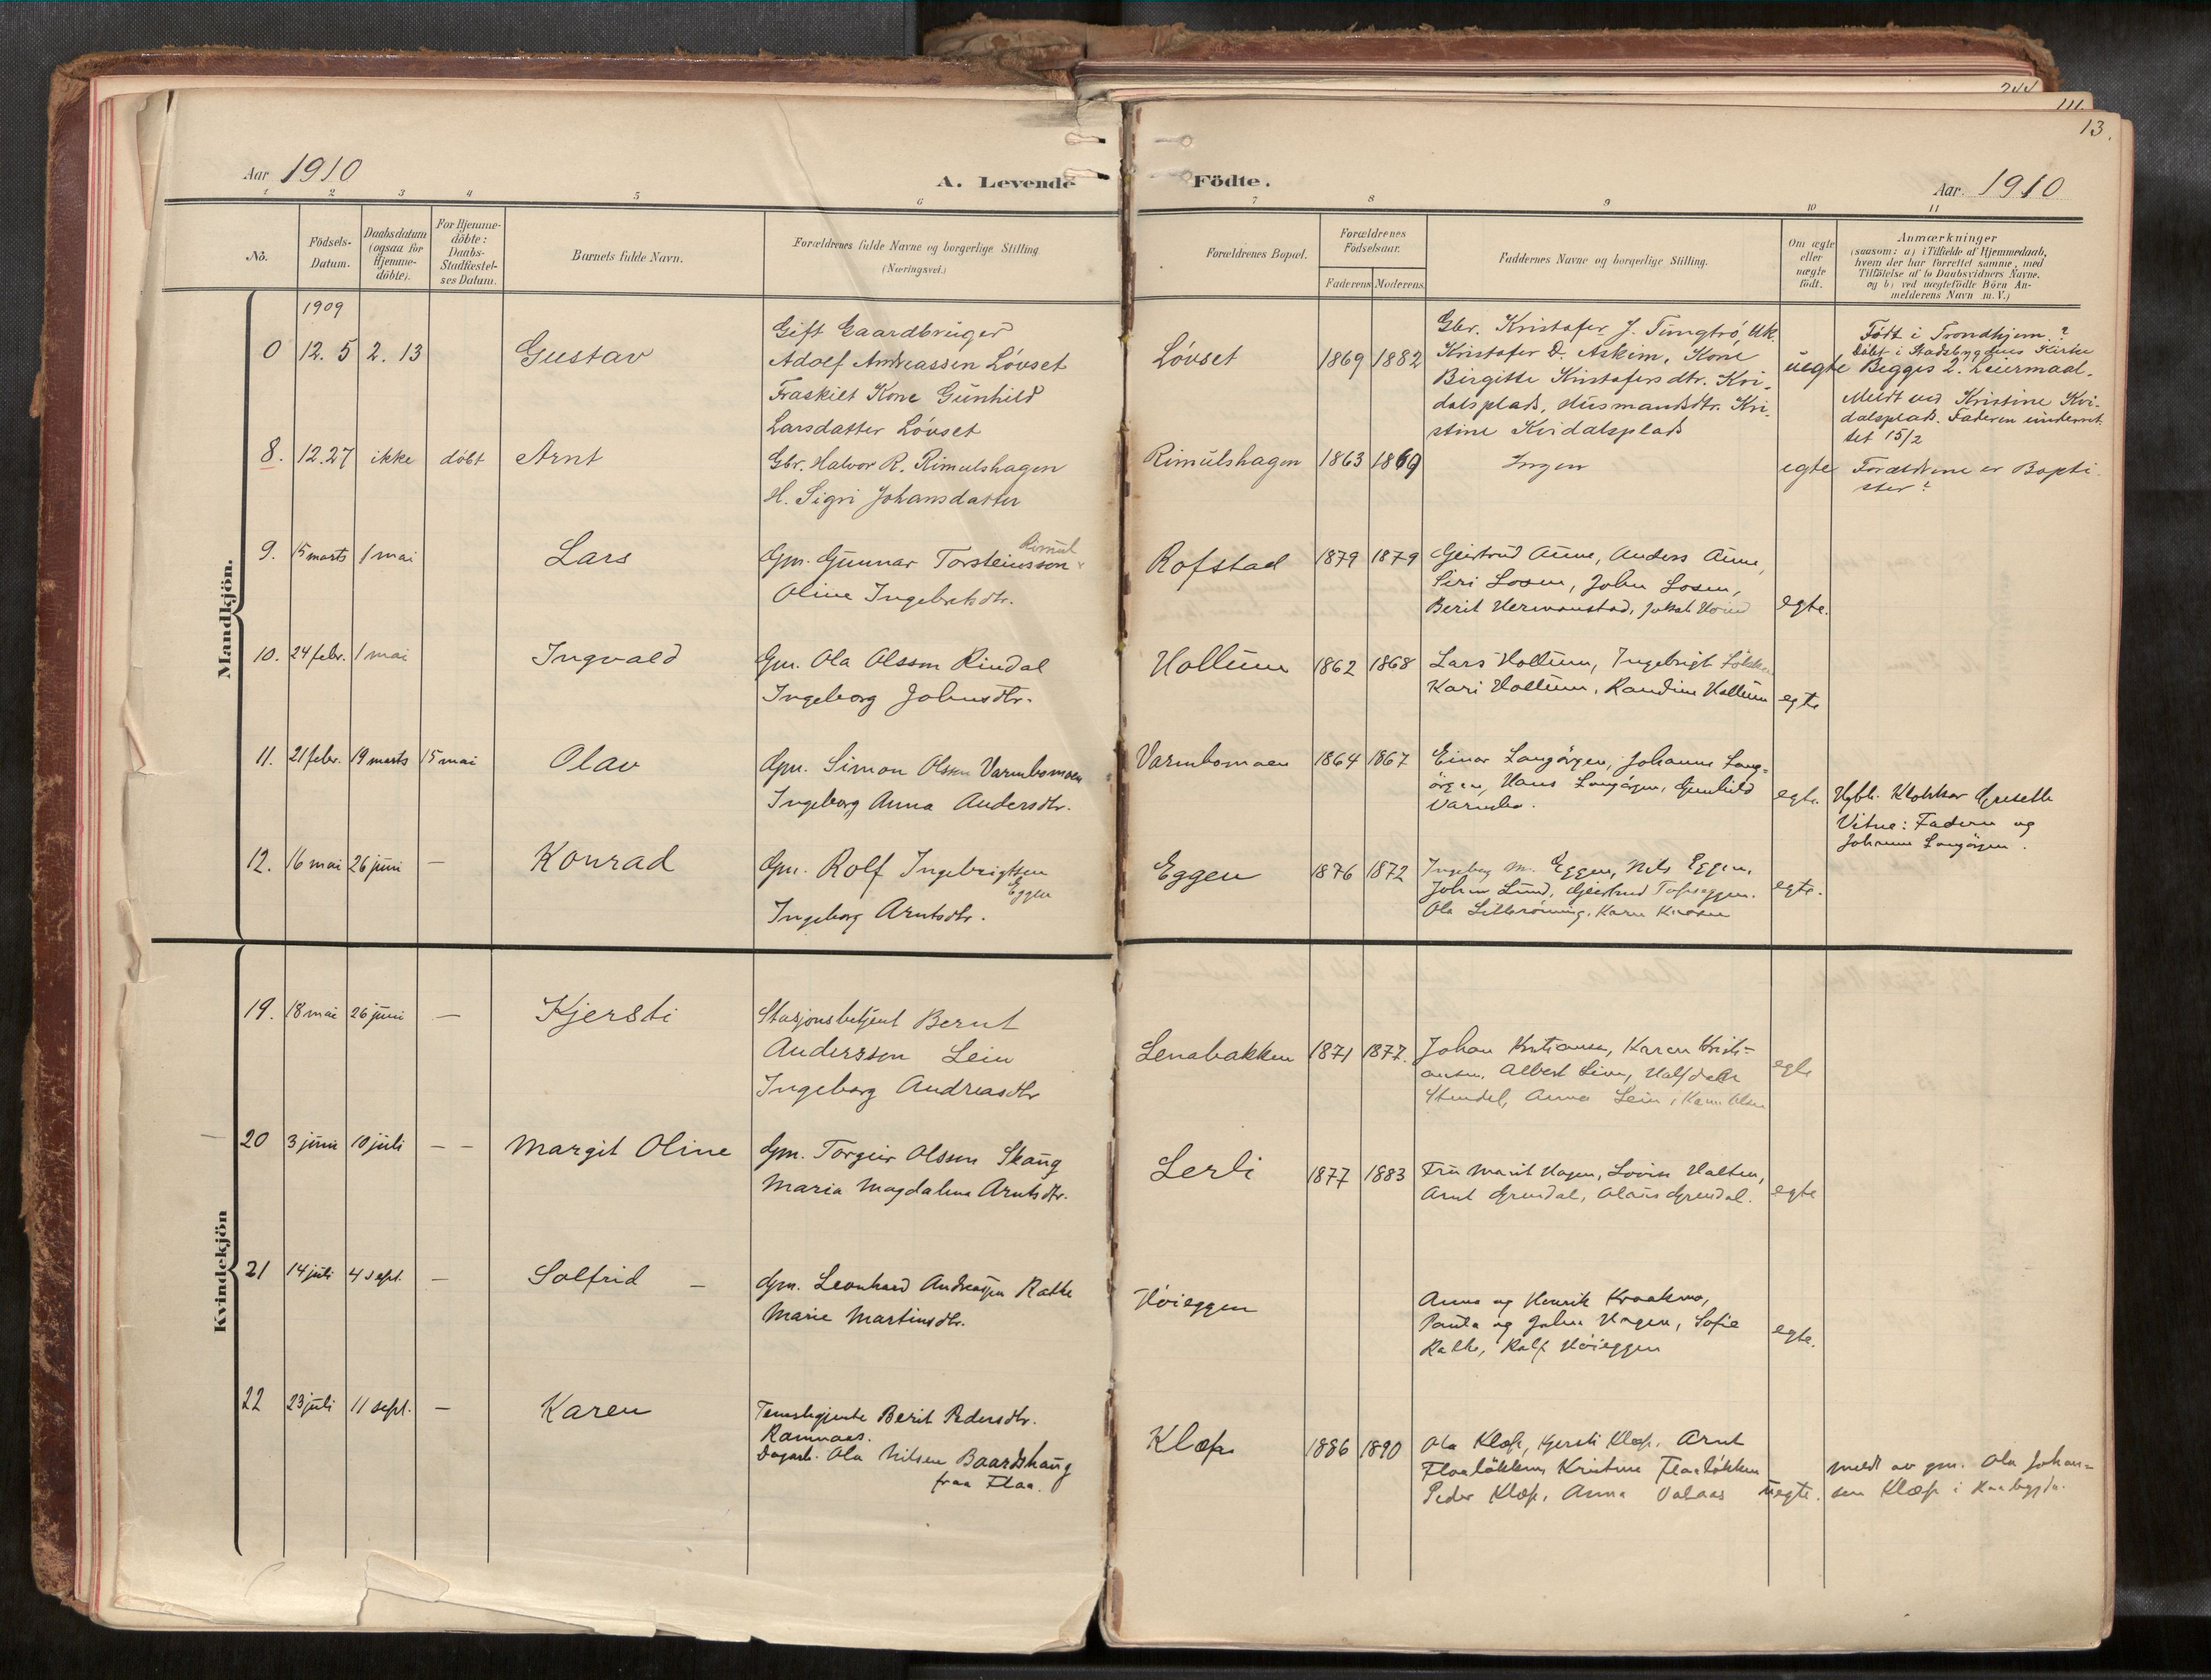 244
111.
13.
Aar 1910
A. Levende Födte.
Aar. 1910
1 2 3 4 5 6 7 8 9 10 11
No.
Födsels-
Datum.
Daabsdatum
(ogsaa for
Hjemme-
döbte).
For Hjemme-
döbte:
Daabs-
Stadfæstel-
ses Datum.
Barnets fulde Navn.
Forældrenes fulde Navne og borgerlige Stilling
(Næringsvei.)
Forældrenes Bopæl.
Forældrenes
Födselsaar.
Faderens Moderens
Faddernes Navne og borgerlige Stilling.
Om ægte
eller
uægte
födt.
Anmærkninger
(saasom: a) i Tilfælde af Hjemmedaab,
hvem der har forrettet samme, med
Tilföielse af to Daabsvidners Navne.
og b) ved uægtefödte Börn An-
melderens Navn m. V.)
Mandkjön.
1909
0 12. 5 2. 13 Gustav
Gift Gaardbruger
Adolf Andreassen Lövset
Fraskilt Kone Gunhild
Larsdatter Lövset
Lövset 1869 1882
Gbr. Kristofer J.
Kristofer D. Askim, Kone
Birgitte Kristofersdtr. Kvi-
dalsplads, Husmandsdtr. Kri-
stine Kvidalsplads
uegte
Født i Trondhjem?
Döbt i Stadsbygdens Kirke
Begges 2. Leiermaal.
Meldt ved Kristine Kvi-
dalsplads. Faderen underret-
tet 15/2
8. 12.27 ikke döbt Arnt
Gbr. Halvor R. Rimulshagen
H. Sigri Johansdatter
Rimulshagen 1863 1869 Ingen egte
Forældrene er Bapti-
ster?
9. 15 marts 1 mai Lars
Gm. Gunnar Torsteinsson Rimul
Oline Ingebretsdtr.
Rofstad 1879 1879
Gjertrud Aune, Anders Aune,
Siri Losen, John Losen,
Berit Hermanstad,
egte.
10. 24 febr. 1 mai Ingvald
Gm. Ola Olsson Rindal
Ingeborg Johnsdtr.
Hollum 1862 1868
Lars Hollum, Ingebrigt Løkken
Kari Hollum, Randine Hollum
egte
11. 21 febr. 19 marts 15 mai Olav
Gm. Simon Olsen Varmbomoen
Ingeborg Anna Andersdtr.
Varmbomoen 1864 1867
Einar Langörgen, Johanne Lang-
örgen, Hans Langörgen, Gunhild
Varmbo.
egte.
Hjbt. Klokker Grisetle
Vitne: Faderen og
Johanne Langörgen.
12. 16 mai 26 juni — Konrad
Gm. Rolf Ingebrigtsen
Eggen
Ingeborg Arntsdtr.
Eggen 1876 1872
Ingebrg M. Eggen, Nils Eggen,
Johan Lund, Gjertrud
Ola
egte.
Kvindekjön
19. 18 mai 26 juni — Kjersti
Stasjonsbetjent Bernt
Anderssen Lein
Ingeborg Andreasdtr
Lenabakken 1871 1877.
Johan Kristiansen, Karen Kristi-
ansen, Albert Lein, Halfdan
Stendal, Anna Lein, Karen Olsen
egte
20 3 juni 10 juli — — Margit Oline
Gm. Torgeir Olsson Skaug
Maria Magdalena Arntsdtr.
Lerli 1877 1883
Fru Marit Hagen, Lovise Halten,
Arnt Grendal, Olaus Grendal.
egte
21 14 juli 4 sept. — Solfrid —
Gm. Leonhard Andreassen Rathe
Marie Martinsdtr.
Höieggen
Anna og Henrik Kraakmo,
Paula og Johan Hagen, Sofie
Rathe, Rolf Höieggen
egte.
22 23 juli 11 sept. — Karen
Tenestegjente Berit Pedersdtr.
Ramnaas.
Dagarb. Ola Nilsen Baardshaug
fraa Flaa.
Klæfs 1886 1890
Ola Klæfs, Kjersti Klæfs. Arnt
Flaalökken, Kristine Flaalökken
Peder Klæfs, Anna
uegte.
meldt av gm. Ola Johan-
sen Klæfs i